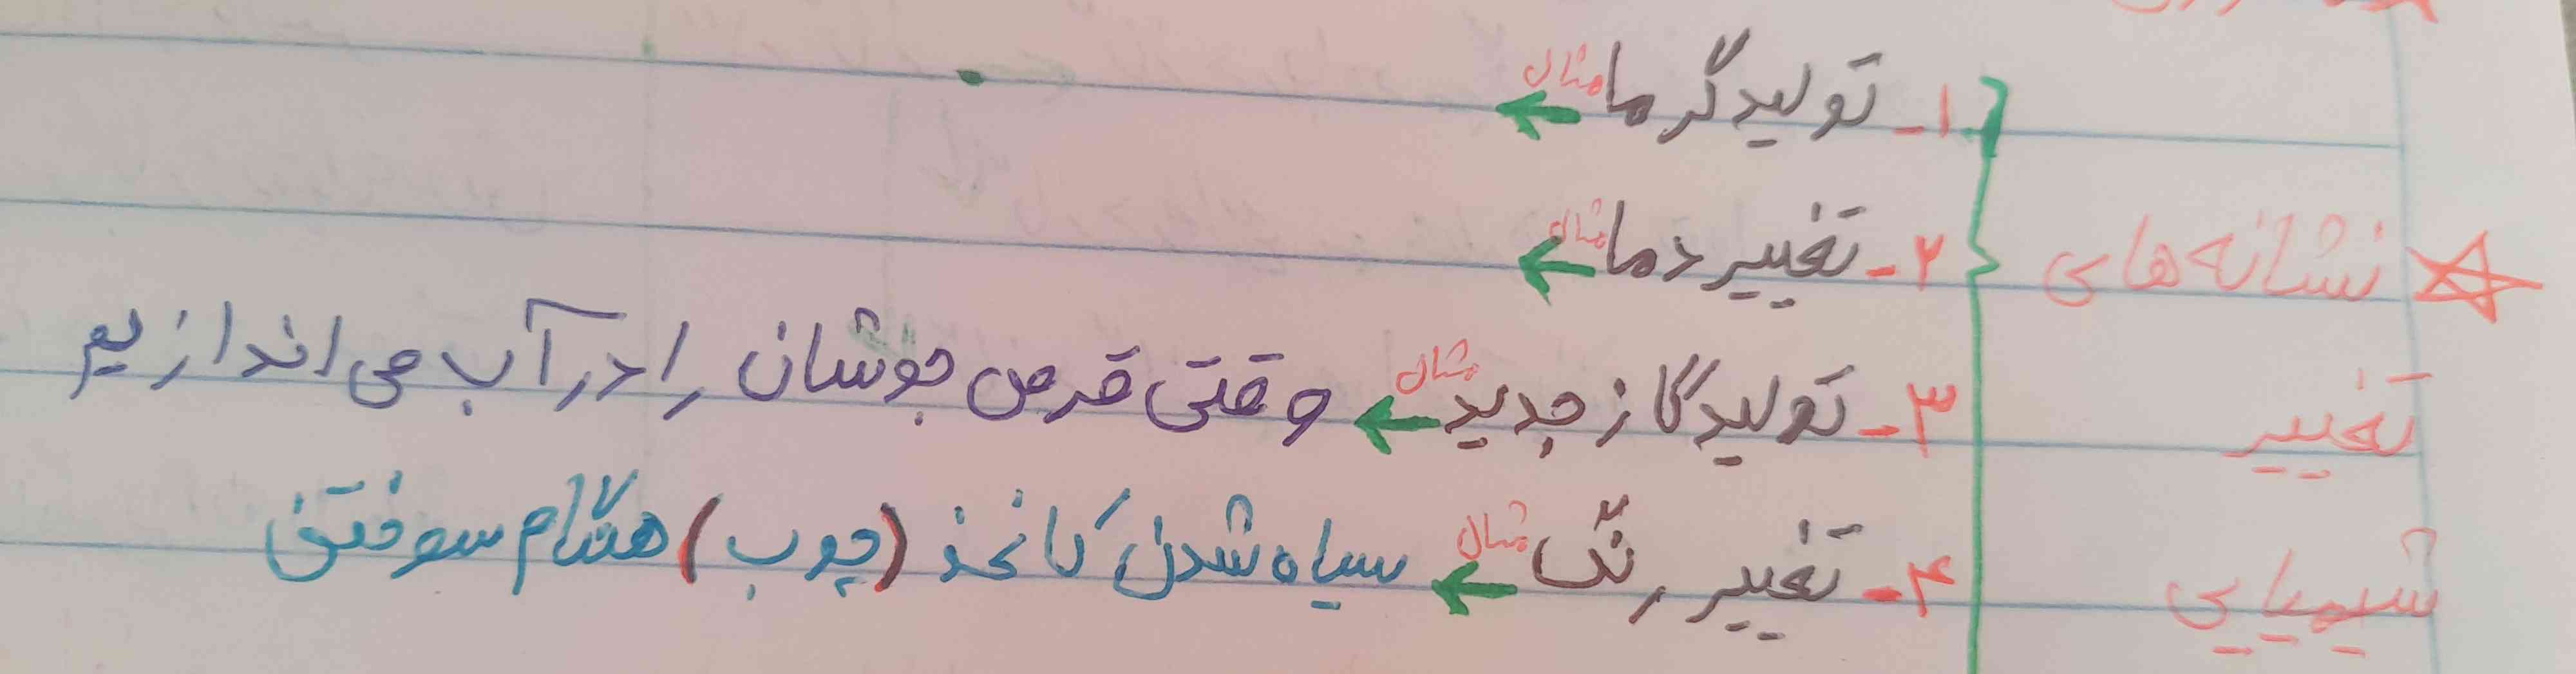 ۱- تولید گرما مثال ←
نشانه های ۲- تغییر دما مثال ←
تغییر ۳- تولید گاز جدید مثال ← وقتی قرص جوشان را در آب می اندازیم
شیمیایی ۴- تغییر رنگ مثال ← سیاه شدن کاغذ (چوب) هنگام سوختن